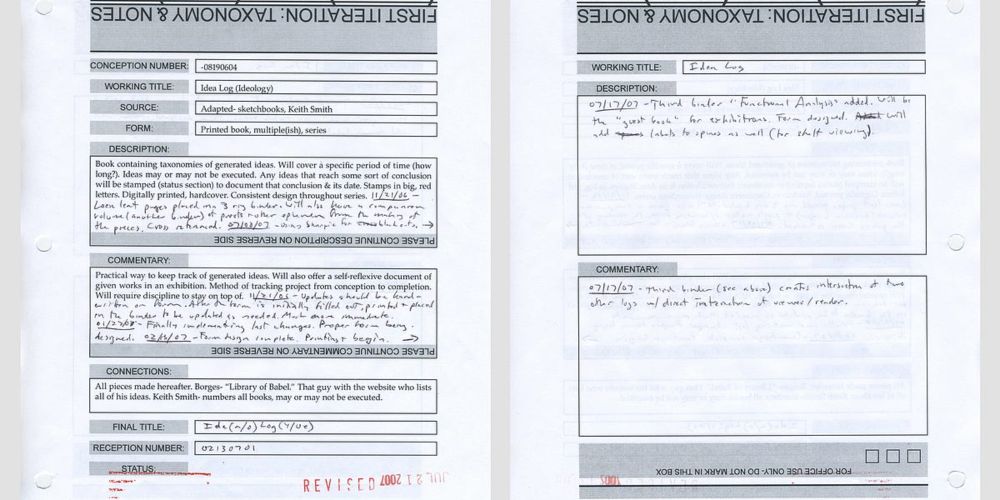 FIRST ITERATION: TAXONOMY & NOTES
CONCEPTION NUMBER: -08190604
WORKING TITLE: Idea Log (Ideology)
SOURCE: Adapted- sketchbooks, Keith Smith
FORM: Printed book, multiple(ish), series
DESCRIPTION:
Book containing taxonomies of generated ideas. Will cover a specific period of time (how
long?). Ideas may or may not be executed. Any ideas that reach some sort of conclusion
will be stamped (status section) to document that conclusion & its date. Stamps in big, red
letters. Digitally printed, hardcover. Consistent design throughout series. 11/21/06 –
Loose leaf pages placed in 3 ring binder. Will also have a companion
volume (another binder) of proofs + other ephemera from the making of
the pieces. Cross referenced. 07/02/07 – using Sharpie for →
PLEASE CONTINUE DESCRIPTION ON REVERSE SIDE
COMMENTARY:
Practical way to keep track of generated ideas. Will also offer a self-reflexive document of
given works in an exhibition. Method of tracking project from conception to completion.
Will require discipline to stay on top of. 11/21/06 – Updates should be hand-
written on form. After form is initially filled out, printed + placed
in the binder to be updated as needed. Much more immediate.
01/27/07 – Finally implementing last changes. Proper form being
designed. 02/13/07 – Form design complete. Printing + begin. →
PLEASE CONTINUE COMMENTARY ON REVERSE SIDE
CONNECTIONS:
All pieces made hereafter. Borges- “Library of Babel.” That guy with the website who lists
all of his ideas. Keith Smith- numbers all books, may or may not be executed.
FINAL TITLE: Ide(a/o)Log(y/ue)
RECEPTION NUMBER: 02130701
STATUS:
REVISED JUL 21 2007
FIRST ITERATION: TAXONOMY & NOTES
WORKING TITLE: Idea Log
DESCRIPTION:
07/17/07 – Third binder "Functional Analysis" added. Will be
the "guest book" for exhibitions. Form designed. Will
add labels to spines as well (for shelf viewing).
COMMENTARY:
07/17/07 – Third binder (see above) creates intersection of two
other logs w/ direct interaction of viewer/reader.
FOR OFFICE USE ONLY- DO NOT MARK IN THIS BOX